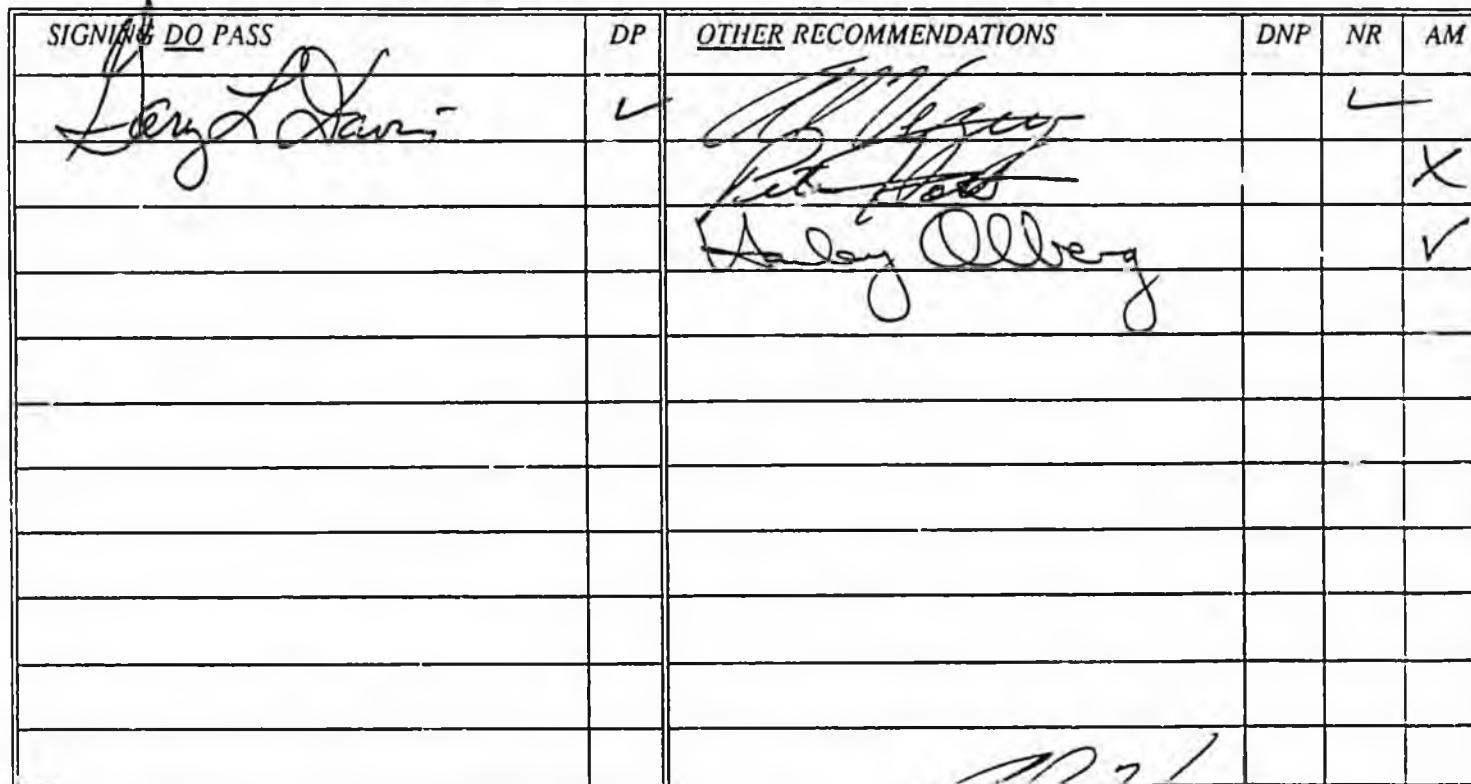 SIGNING DO PASS DP OTHER RECOMMENDATIONS DNP NR AM
Gary L Davis ✓ ✓
Pete Kott X
Harley Olberg ✓